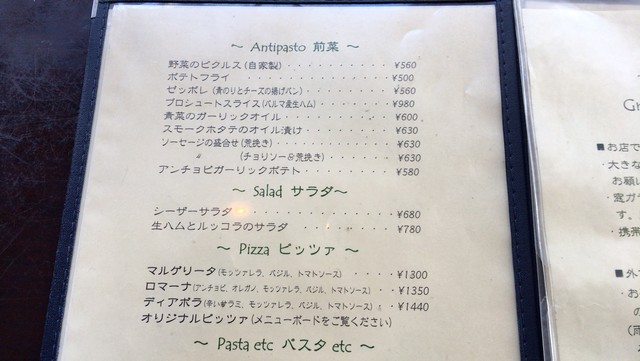 ～ Antipasto 前菜 ～
野菜のピクルス（自家製）・・・・・・・・・・¥560
ポテトフライ ・・・・・・・・・・・・¥500
ゼッポレ（青のりとチーズの揚げパン）・・・・・・¥560
プロシュートスライス（パルマ産生ハム）・・・・・・¥980
青菜のガーリックオイル・・・・・・・・・・¥600
スモークホタテのオイル漬け・・・・・・・・¥630
ソーセージの盛合せ（荒挽き）・・・・・・・・・¥630
（チョリソー&荒挽き）・・・・・¥630
アンチョビガーリックポテト・・・・・・・・¥580
～ Salad サラダ～
シーザーサラダ・・・・・・・・・・・・・¥680
生ハムとルッコラのサラダ・・・・・・・¥780
～ Pizza ピッツァ ～
マルゲリータ（モッツァレラ、バジル、トマトソース）・・・・¥1300
ロマーナ（アンチョビ、オレガノ、モッツァレラ、バジル、トマトソース）・¥1350
ディアボラ（辛い サラミ、モッツァレラ、バジル、トマトソース）・・¥1440
オリジナルピッツァ（メニューボードをご覧ください）
～ Pasta etc パスタ etc ～
■お店で
・大きな
お願い
す。
・携帯
■外
・お
の
（雨